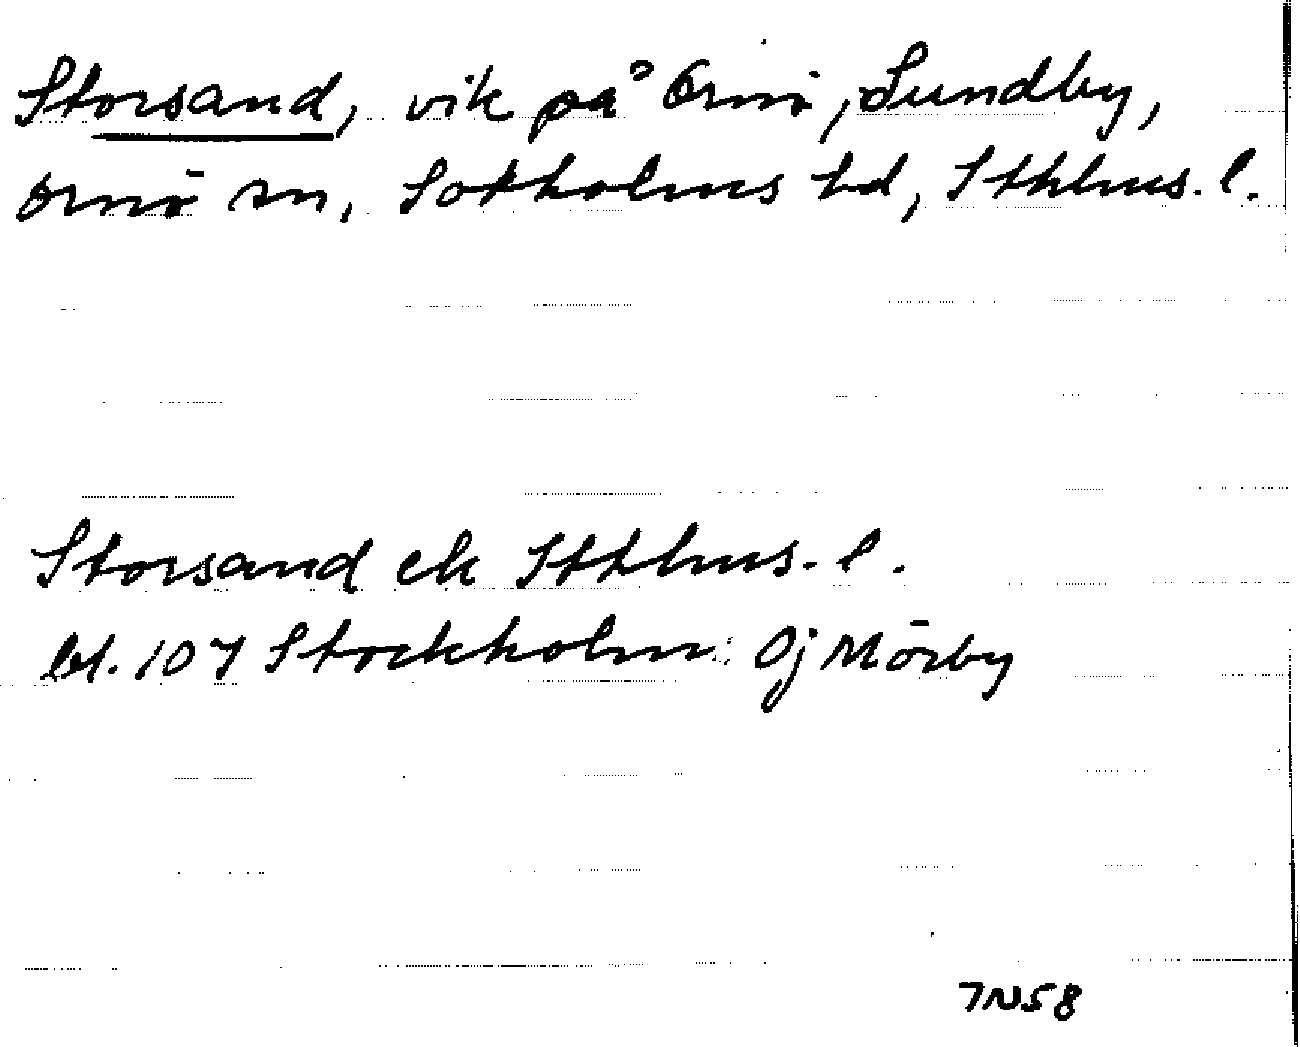 Storsand, vik på Ornö, Sundby,
Ornö sn, Sotholms hd, Sthlms. l.
Storsand ek Sthlms. l.
bl. 107 Stockholm Oj Mörby
7N58